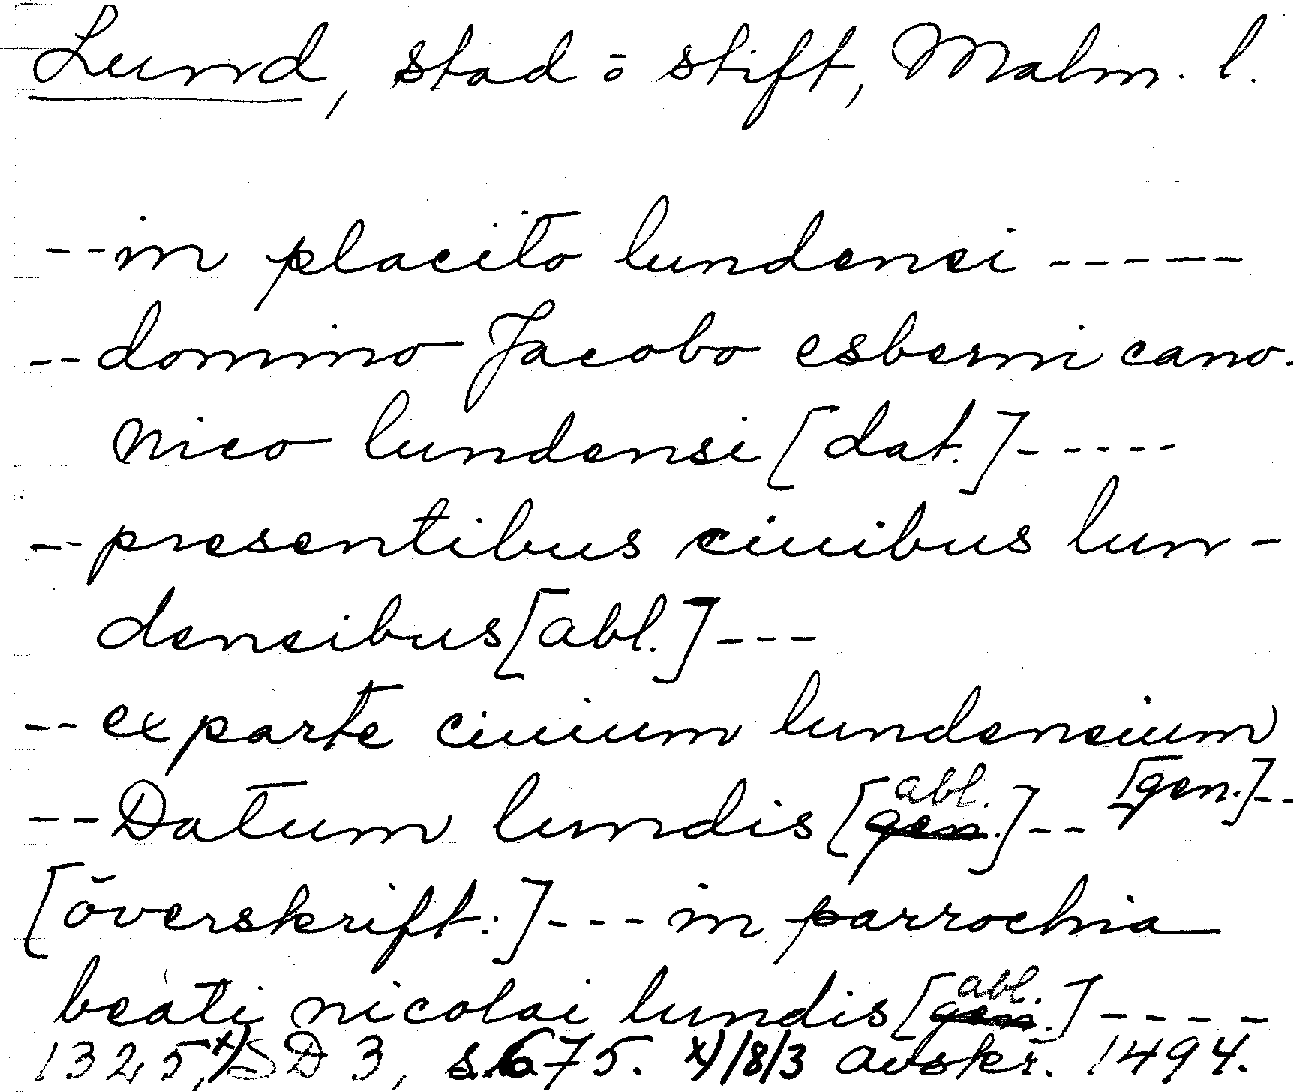 Lund, stad o stift, Malm. l.
-- in placito lundensi -----
-- domino Jacobo esberni cano-
nico lundensi [dat.] -----
-- presentibus ciuibus lun-
densibus [abl.] ---
-- ex parte ciuium lundensium
[gen.] --
-- Datum lundis [gen. abl.] --
[överskrift:] --- in parrochia
beati nicolai lundis [gen. abl.] ----
1325, x) SD 3, s. 675. x) 1/8/3 avskr. 1494.